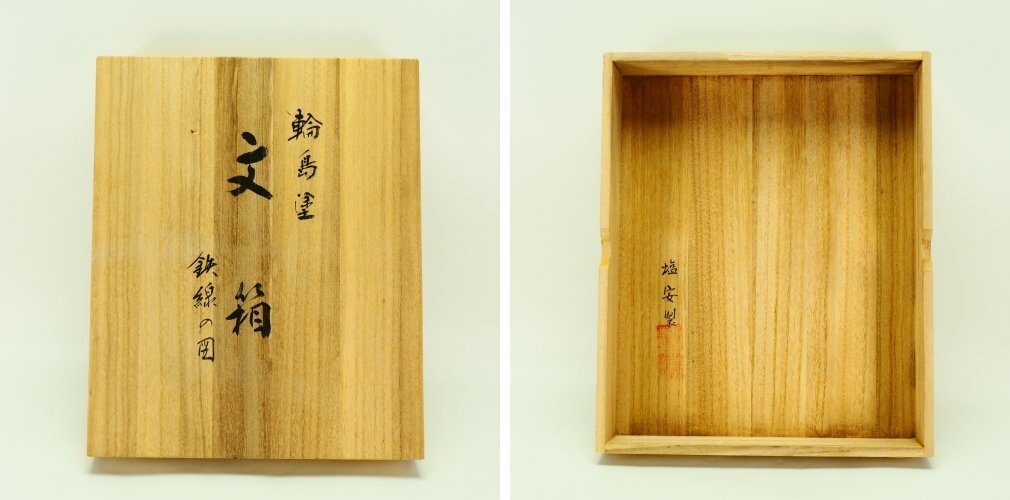 輪島塗
文箱
鉄線の図
塩安製